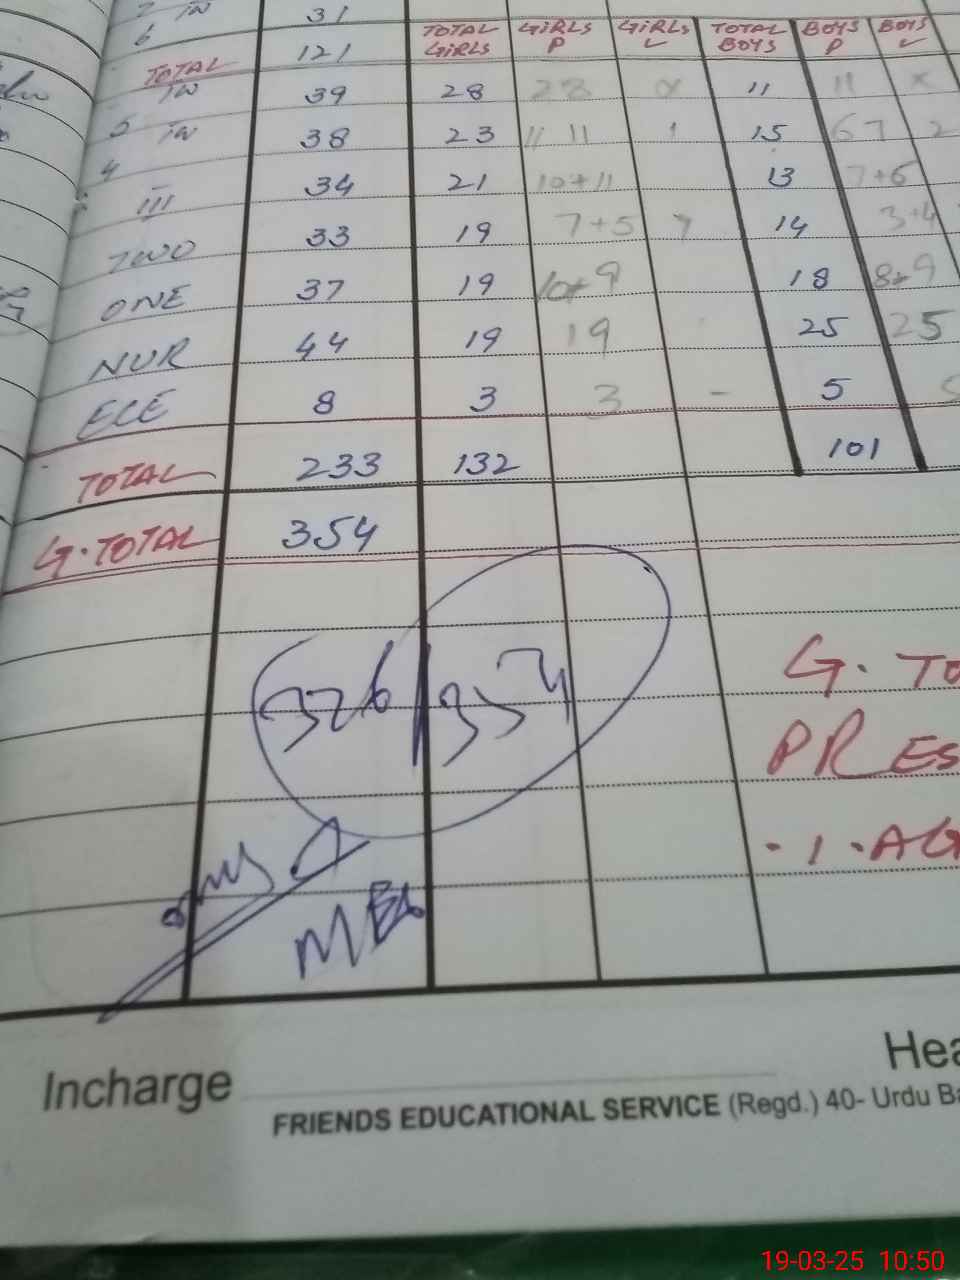 7 IN 31
6
TOTAL 121 TOTAL GIRLS GIRLS P GIRLS L TOTAL BOYS BOYS P BOYS L
IN 39 28 28 x 11 11 x
5 IN 38 23 11 11 1 15 6 7 2
4
III 34 21 10+11 13 7+6
TWO 33 19 7+5 7 14 3+4
ONE 37 19 10+9 18 8+9
NUR 44 19 19 25 25
ECE 8 3 3 - 5 5
TOTAL 233 132 101
G.TOTAL 354
326/354
G. TO
PRES
.1.AG
Incharge Hea
FRIENDS EDUCATIONAL SERVICE (Regd.) 40- Urdu Ba
19-03-25 10:50